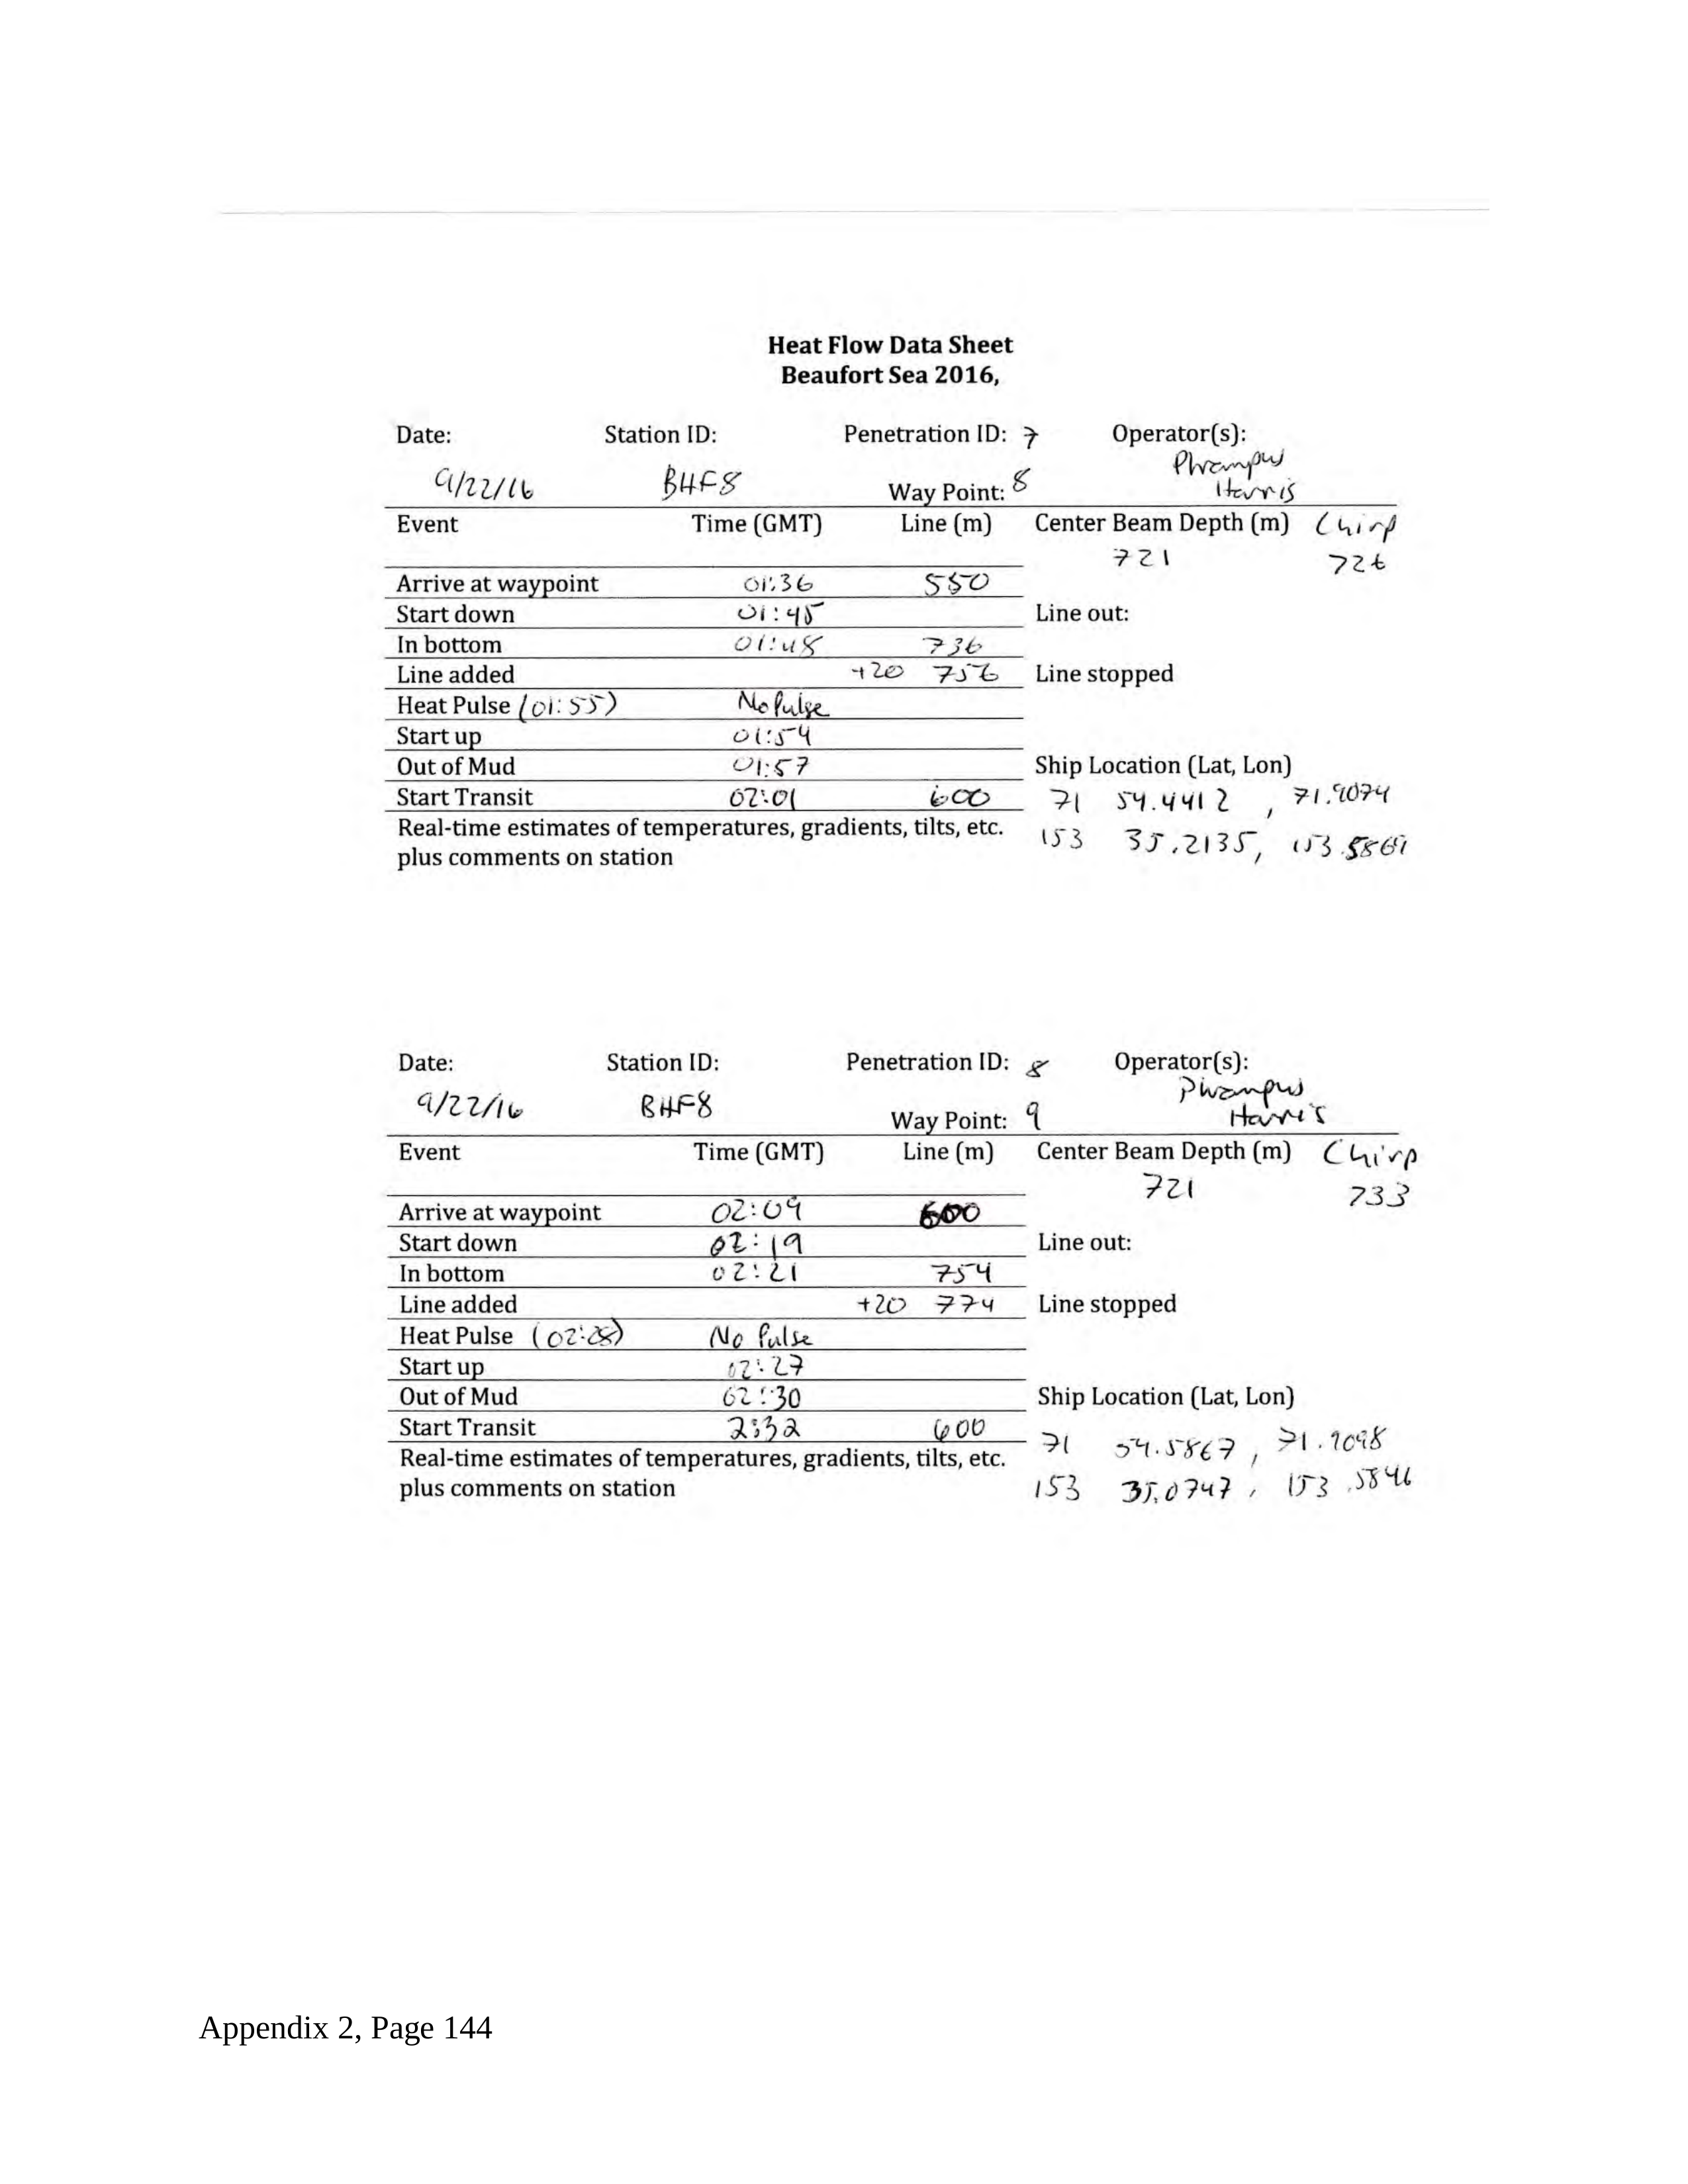 Heat Flow Data Sheet
Beaufort Sea 2016,
Date: Station ID: Penetration ID: 7 Operator(s):
Phrampus
9/22/16 BHF8 Way Point: 8 Harris
Event Time (GMT) Line (m) Center Beam Depth (m) Chirp
721 726
Arrive at waypoint 01:36 550
Start down 01:45 Line out:
In bottom 01:48 736
Line added +20 756 Line stopped
Heat Pulse (01:55) No Pulse
Start up 01:54
Out of Mud 01:57 Ship Location (Lat, Lon)
Start Transit 02:01 600 71 54.4412 , 71.9074
Real-time estimates of temperatures, gradients, tilts, etc. 153 35.2135, 153.5869
plus comments on station
Date: Station ID: Penetration ID: 8 Operator(s):
Phrampus
9/22/16 BHF8 Way Point: 9 Harris
Event Time (GMT) Line (m) Center Beam Depth (m) Chirp
721 733
Arrive at waypoint 02:09 600
Start down 02:19 Line out:
In bottom 02:21 754
Line added +20 774 Line stopped
Heat Pulse (02:28) No Pulse
Start up 02:27
Out of Mud 02:30 Ship Location (Lat, Lon)
Start Transit 2:32 600 71 54.5867 , 71.9098
Real-time estimates of temperatures, gradients, tilts, etc.
plus comments on station 153 35.0747 , 153.5846
Appendix 2, Page 144